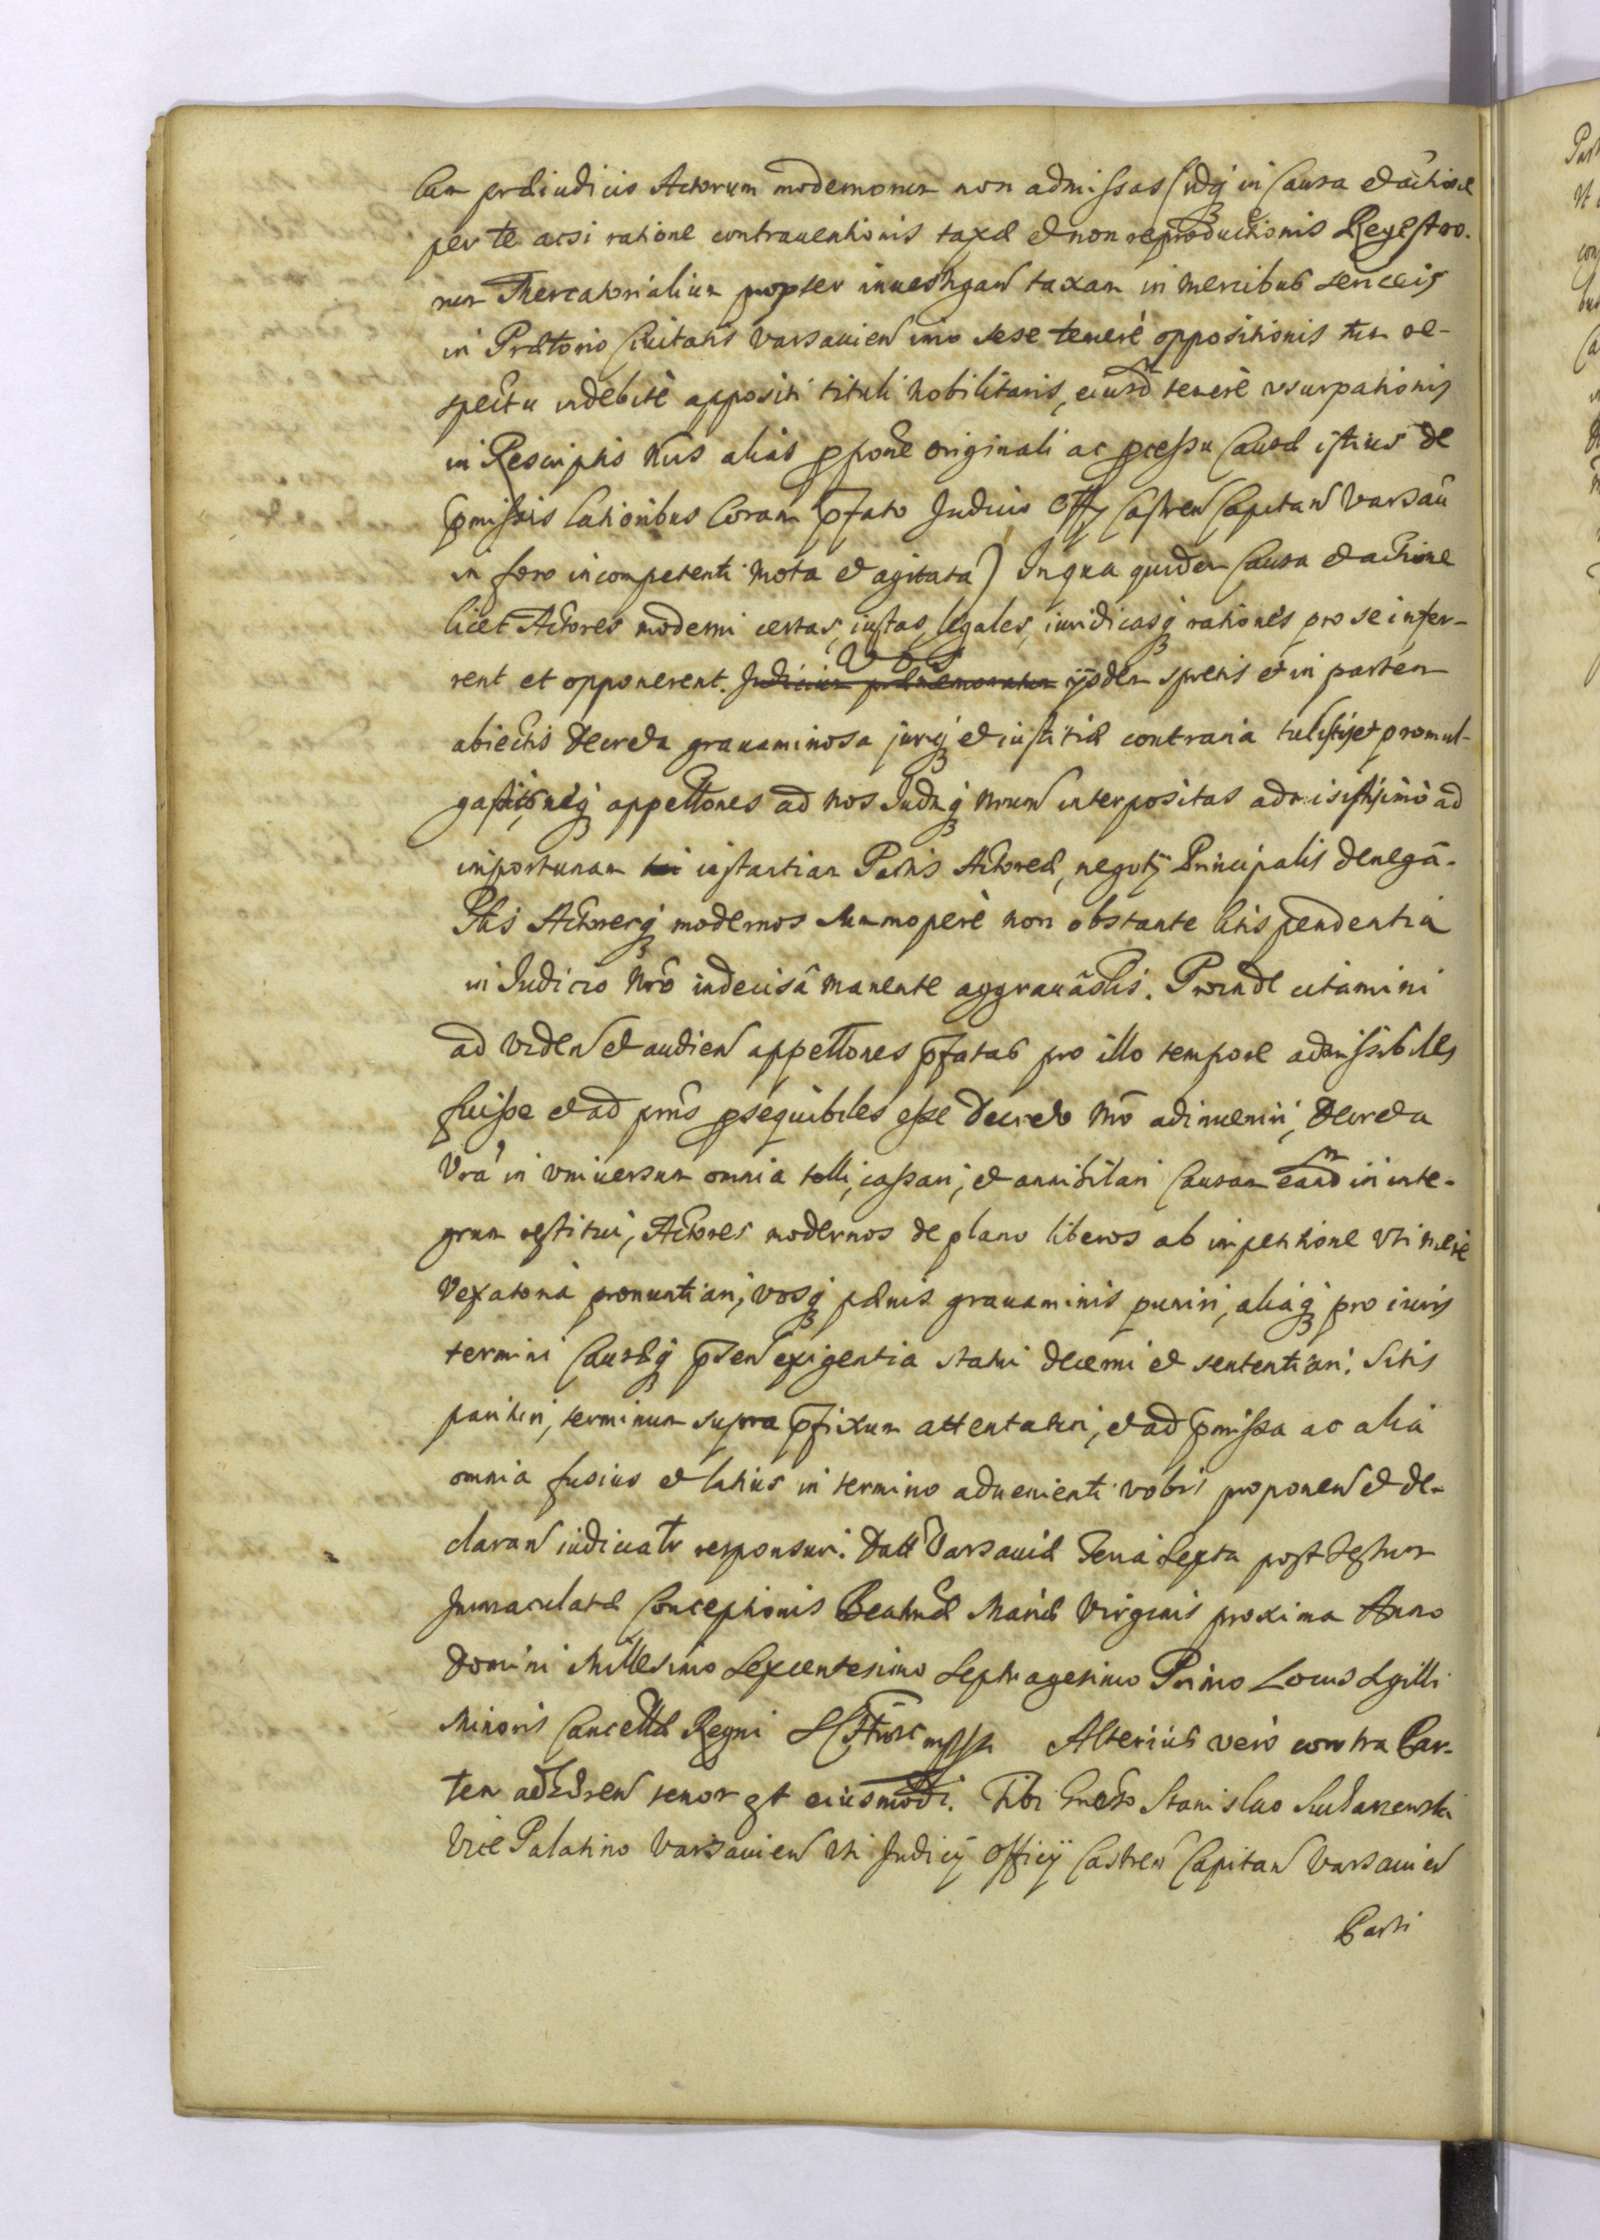 cum præiudicio Actorum modernorum non admissas (idq in Causa et actione
per te acsi ratione contrauentionis taxæ et non reproductionis Regestro-
rum Mercatorialium propter inuestigan taxam in mercibus sericeis
in Prætorio Ciuitatis Varsauien imo sese temerè oppositionis tum re-
spectu indebitè appositi tituli Nobilitaris, eiusdm temerè vsurpationis
in Rescriptis Nris aliàs ppone originali ac pcessu Causæ istius de
pmissis lationibus Coram pfato Judicio Offy Castren Capitan Varsaū
in foro incompetenti Mota et agitata) In qua quidem Causa et actione
licet Actores moderni certas, iustas, legales, iuridicasq rationes pro se infer-
rent et opponerent. Judicium præmemoratum Vos ijsdem spretis et in partem
abiectis Decreta grauaminosa juriq et iustitiæ contraria tulistis et promul-
gastis, neq appellones ad Nos Judq Nrum interpositas admisistis, imò ad
importunam instantiam Partis Actoreæ, negoty Principalis denegā-
stis Actoresq modernos summoperè non obstante litispendentia
in Judicio Nrō indecisâ manente aggrauāstis. Proinde citamini
ad viden et audien appellones pfatas pro illo tempore admissibiles
fuisse et ad prns psequibiles esse Decreto Nrō adinueniri, Decreta
Vra in vniuersum omnia tolli, cassari, et annihilari Causam eandm in inte-
grum restitui, Actores modernos de plano liberos ab impetitione vti merè
Vexatoria pronuntiari, vosq pænis grauaminis puniri, aliaq pro iuris
termini Causæq psen exigentia statui decerni et sententiari. Sitis
parituri, terminum supra pfixum attentaturi, et ad pmissa ac alia
omnia fusius et latius in termino aduenienti vobis proponen et de-
claran iudicialr responsuri. Datt Varsauiæ Feria Sexta post Festum
Immaculatæ Conceptionis Beatissmæ Mariæ Virginis proxima Anno
Domini Millesimo Sexcentesimo Septuagesimo Primo Locus Sgilli
Minoris Cancellæ Regni Alterius verò contra Par-
tem adhæren tenor est eiusmodi. Tibi Gneroso Stanislao
Vice Palatino Varsauien vti Judicij Officij Castren Capitan Varsauien
Parti